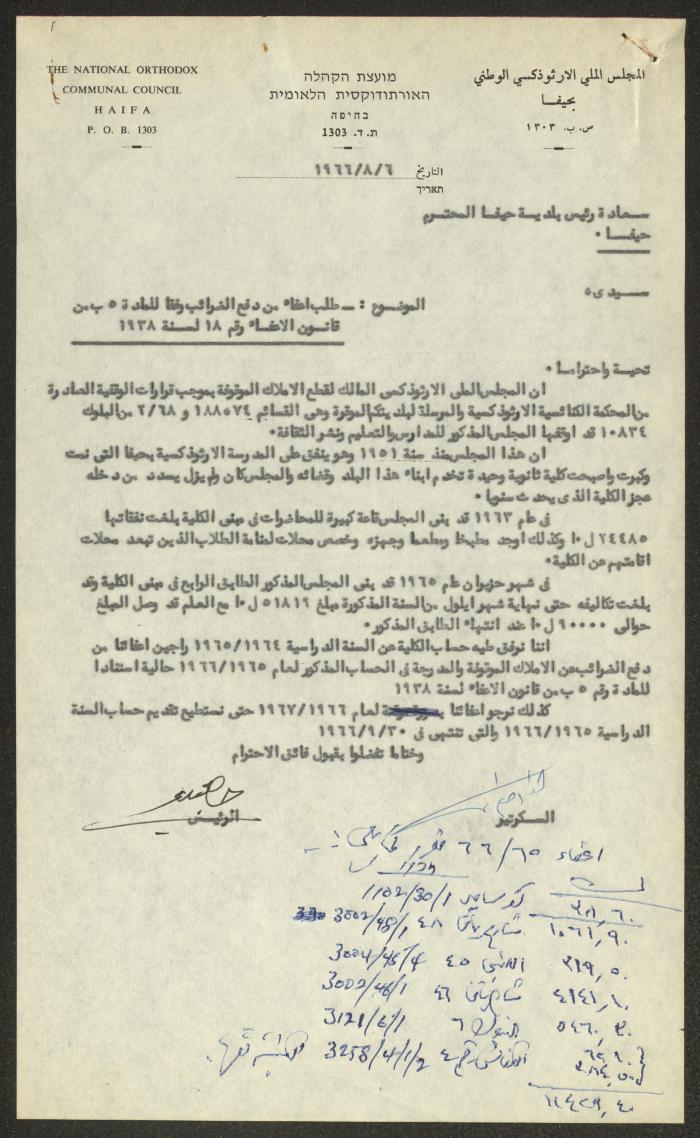 THE NATIONAL ORTHODOX
COMMUNAL COUNCIL
HAIFA
P. O. B. 1303
מועצת הקהלה
האורתודוקסית הלאומית
בחיפה
ת. ד. 1303
المجلس الملي الارثوذكسي الوطني
بحيفا
ص. ب. ١٣٠٣
التاريخ ١٩٦٦/٨/٦
תאריך
سعادة رئيس بلدية حيفا المحترم
حيفا ٠
سيدي ،
الموضوع : ــ طلب اعفاء من دفع الضرائب وفقا للمادة ٥ ب من
قانون الاعفاء رقم ١٨ لسنة ١٩٣٨
تحية واحتراما ٠
ان المجلس الملي الارثوذكسي المالك لقطع الاملاك الموقوفة بموجب قرارات الوقفية الصادرة
من المحكمة الكنائسية الارثوذكسية والمرسلة لبلديتكم الموقرة وهي القسائم ٧٤ و ٥ و ١٨٨ و ٢/٦٨ من البلوك
١٠٨٣٤ قد اوقفها المجلس المذكور للمدارس والتعليم ونشر الثقافة٠
ان هذا المجلس منذ سنة ١٩٥١ وهو ينفق على المدرسة الارثوذكسية بحيفا التي نمت
وكبرت واصبحت كلية ثانوية وحيدة تخدم ابناء هذا البلد وقضائه والمجلس كان ولم يزل يسدد من دخله
عجز الكلية الذي يحدث سنويا ٠
في عام ١٩٦٣ قد بنى المجلس قاعة كبيرة للمحاضرات في مبنى الكلية بلغت نفقاتها
٧٤٤٨٥ ل٠ا وكذلك اوجد مطبخا ومطعما وجهزه وخصص محلات لمنامة الطلاب الذين تبعد محلات
اقامتهم عن الكلية٠
في شهر حزيران عام ١٩٦٥ قد بنى المجلس المذكور الطابق الرابع في مبنى الكلية وقد
بلغت تكاليفه حتى نهاية شهر ايلول من السنة المذكورة مبلغ ٥١٨١٩ ل٠ا مع العلم قد وصل المبلغ
حوالي ٩٠٠٠٠ ل٠ا عند انتهاء الطابق المذكور ٠
اننا نرفق طيه حساب الكلية عن السنة الدراسية ١٩٦٥/١٩٦٤ راجين اعفائنا من
دفع الضرائب عن الاملاك الموقوفة والمدرجة في الحساب المذكور لعام ١٩٦٦/١٩٦٥ حالية استنادا
للمادة رقم ٥ ب من قانون الاعفاء لسنة ١٩٣٨
كذلك نرجو اعفائنا لعام ١٩٦٧/١٩٦٦ حتى نستطيع تقديم حساب السنة
الدراسية ١٩٦٦/١٩٦٥ والتي تنتهي في ١٩٦٦/٩/٣٠
وختاما تفضلوا بقبول فائق الاحترام
السكرتير
الرئيس
اعفاء ٦٦/٦٥
1102/30/1
3002/48/1 ٤٨
3004/45/4 ٤٥
3002/46/1 ٤٦
3121/6/1 ٦
3258/4/1/2